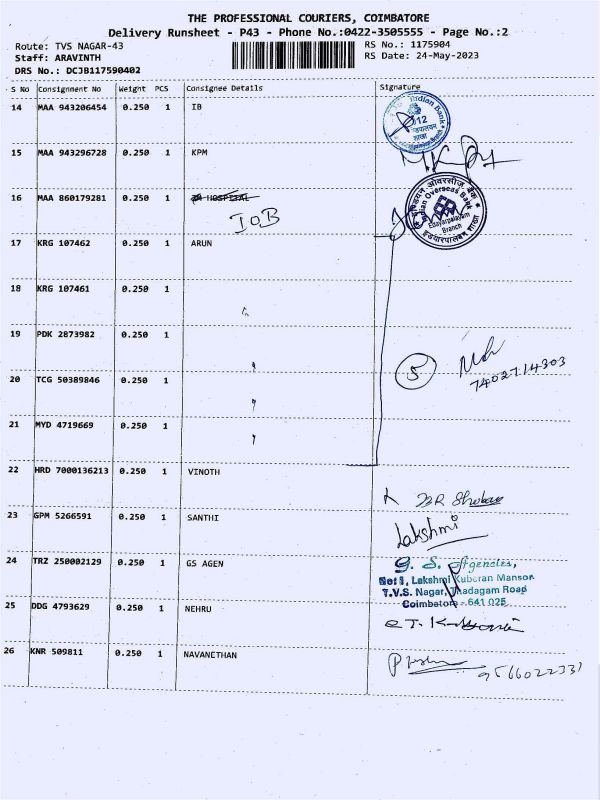 THE PROFESSIONAL COURIERS, COIMBATORE
Delivery Runsheet - P43 - Phone No.:0422-3505555 - Page No.:2
Route: TVS NAGAR-43 RS No.: 1175904
Staff: ARAVINTH RS Date: 24-May-2023
DRS No.: DCJB117590402
S No Consignment No Weight PCS Consignee Details Signature
14 MAA 943206454 0.250 1 IB
Indian Bank
15 MAA 943296728 0.250 1 KPM
16 MAA 860179281 0.250 1 HOSPITAL
IOB
इण्डियन ओवरसीज़ बैंक
Indian Overseas Bank
Edayarpalayam
Branch
17 KRG 107462 0.250 1 ARUN
18 KRG 107461 0.250 1
19 PDK 2873982 0.250 1
5 7402714303
20 TCG 50389846 0.250 1
21 MYD 4719669 0.250 1
22 HRD 7000136213 0.250 1 VINOTH
23 GPM 5266591 0.250 1 SANTHI
Lakshmi
24 TRZ 250002129 0.250 1 GS AGEN
G. S. Agencies,
No: 1, Lakshmi Kuberan Mansor
T.V.S. Nagar, Thadagam Road
Coimbatore - 641 025
25 DDG 4793629 0.250 1 NEHRU
26 KNR 509811 0.250 1 NAVANETHAN
9566022331